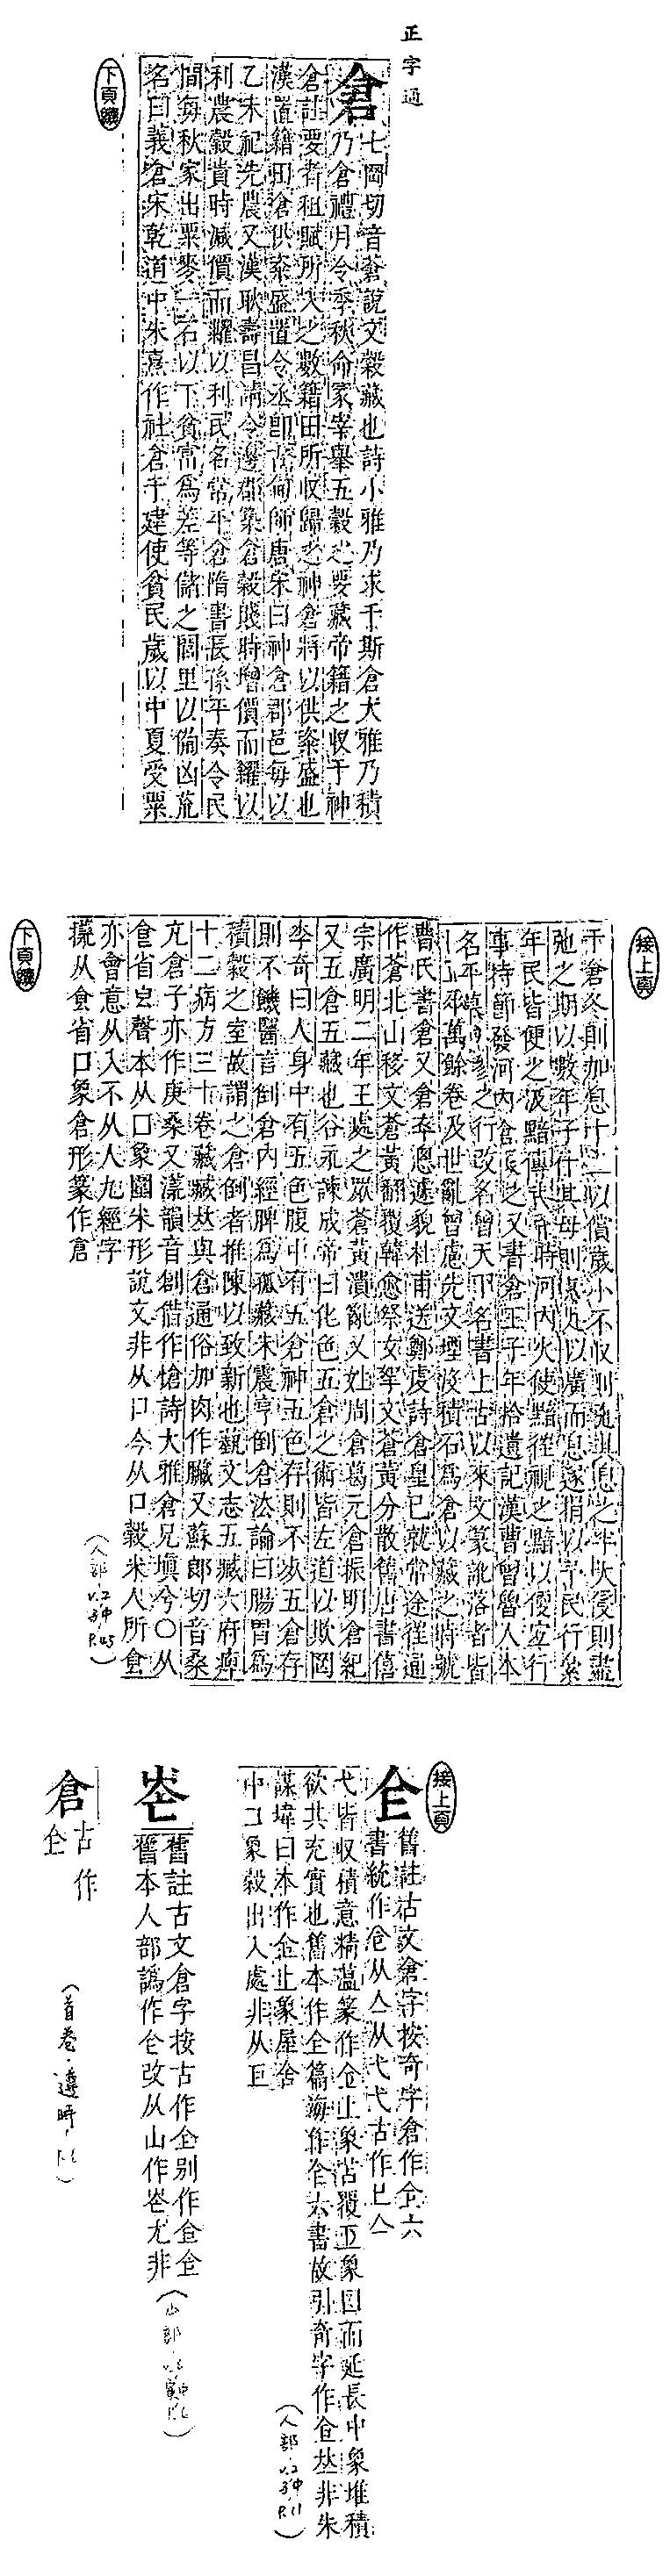 正字通
倉
七岡切音蒼說文穀藏也詩小雅乃求千斯倉大雅乃積
乃倉禮月令季秋命冢宰舉五穀之要藏帝籍之收于神
倉註要者租賦所入之數籍田所收歸之神倉將以供粢盛也
漢置籍田倉供粢盛置令丞卽古甸師唐宋曰神倉郡邑每以
乙未祀先農又漢耿壽昌請令邊郡築倉穀賤時增價而糴以
利農穀貴時減價而糶以利民名常平倉隋書長孫平奏令民
間每秋家出粟麥一石以下貧富爲差等儲之閭里以備凶荒
名曰義倉宋乾道中朱熹作社倉于建使貧民歲以中夏受粟
下頁續
接上頁
于倉冬則加息什二以償歲小不收則弛其息之半大侵則盡
弛之期以數年子什其母則惠足以廣而息遂捐以予民行
年民皆便之汲黯傳武帝時河內火使黯往視之黯以便宜行
事持節發河內倉振之又書倉王子年拾遺記漢曹曾魯人本
名平慕曾參之行改名曾天下名書上古以來文篆訛落者皆
萬餘卷及世亂曾慮先文堙沒積石爲倉以藏之時號
曹氏書倉又倉卒悤遽貌杜甫送鄭虔詩倉皇已就常途往通
作蒼北山移文蒼黃翻覆韓愈祭女挐文蒼黃分散舊唐書僖
宗廣明二年王處之眾蒼黃潰亂又姓周倉葛元倉振明倉紀
又五倉五藏也谷永諫成帝曰化色五倉之術皆左道以欺罔
李奇曰人身中有五色腹中有五倉神五色存則不死五倉存
則不饑醫言倒倉內經脾爲孤藏朱震亨倒倉法論曰腸胃爲
積穀之室故謂之倉倒者推陳以致新也藝文志五臟六府痺
十二病方三十卷藏臟𠀤與倉通俗加肉作臟又蘇郎切音桑
亢倉子亦作庚桑又漾韻音創借作愴詩大雅倉兄塡兮○从
食省皀聲本从囗象圜米形說文非从口今从口穀米人所食
亦會意从入不从人九經字
㨾从食省口象倉形篆作倉
（人部，v.2 子中 p.45）
下頁續
接上頁
仺
舊註古文倉字按奇字倉作仺六
書統作仺从亼从弋弋古作巳亼
弋皆收積意精蘊篆作仺上象苫覆亚象囗而延長中象堆積
欲其充實也舊本作仺篇海作仺六書故引奇字作仺𠀤非朱
謀㙔曰本作仺上象屋舍
中口象穀出入處非从巨
（人部，v.2 子中 p.11）
舊註古文倉字按古作仺別作仺仺
舊本人部譌作仺改从山作𡶍尤非
倉
古作
仺
（首卷，遵時，p.6）